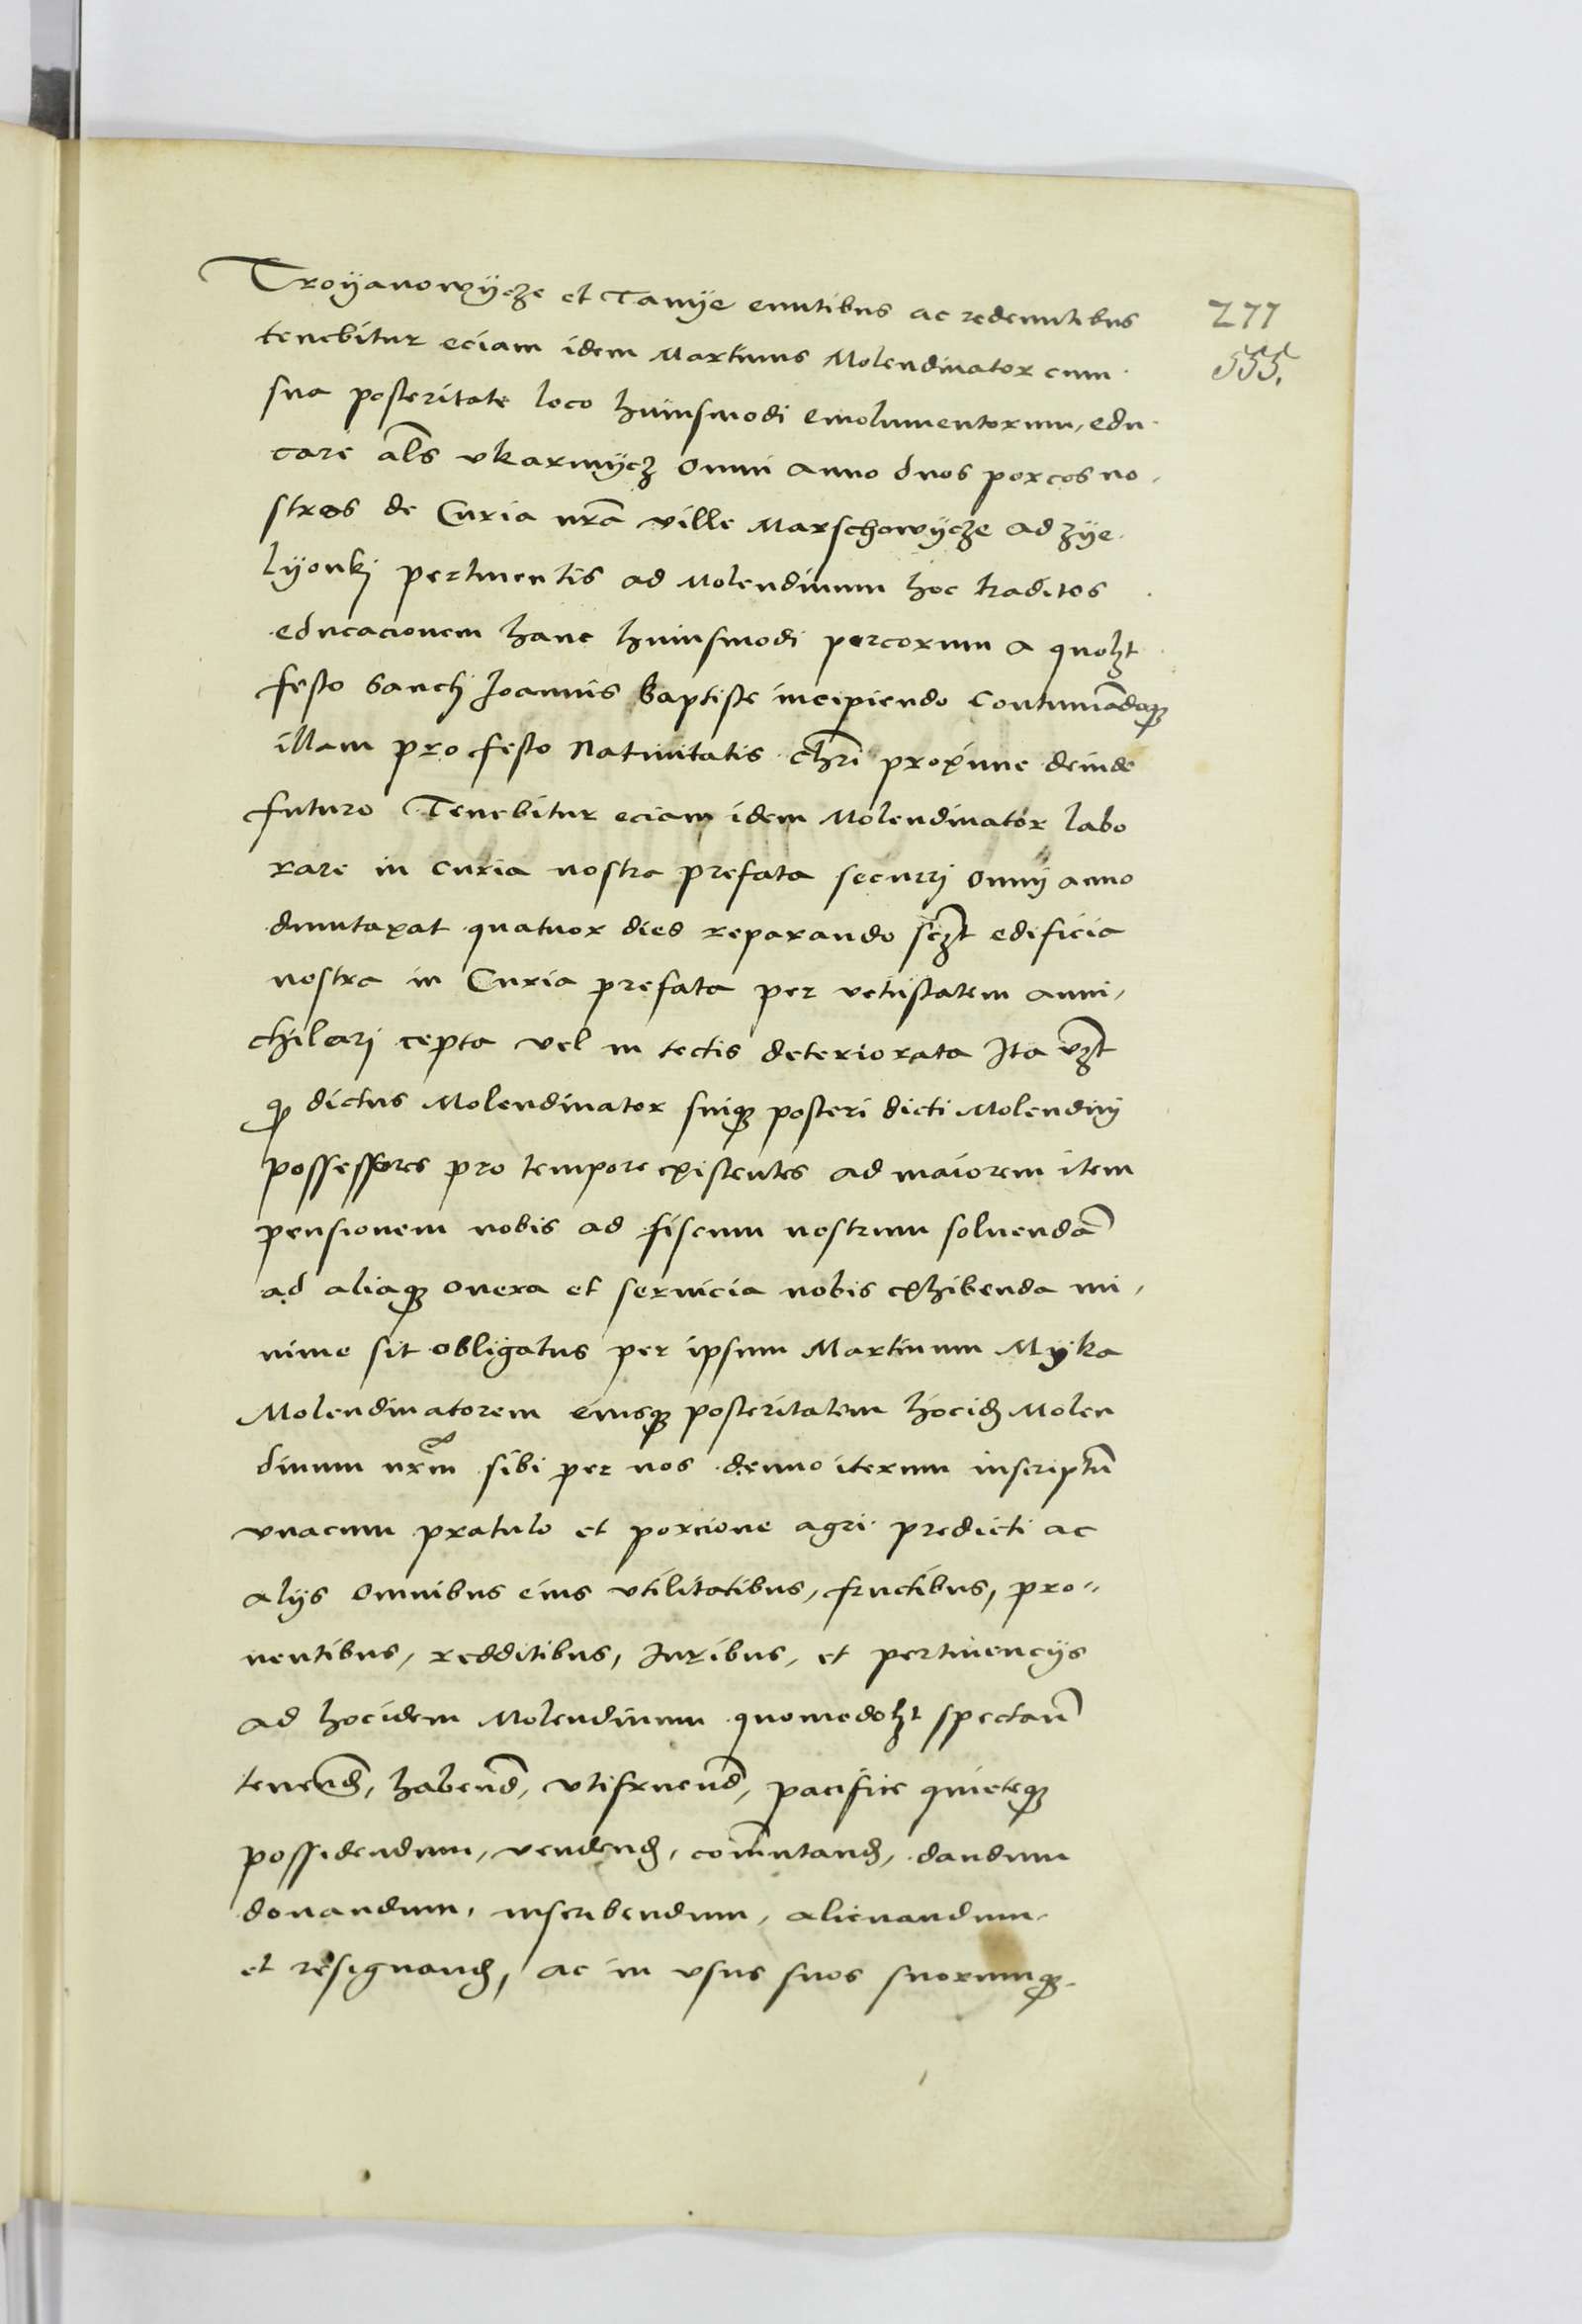 Troyanowycze et Tamye emntibus ac redemntibus
277
tenebitur eciam idem Martinus Molendinator cum
555.
sua posteritate loco huiusmodi emolumentorum, edu
care als vkarmycz omni anno duos porcos no,
stros de Curia nrã ville Marschowycze ad zye
lyonkj pertinentis ad Molendinum hoc traditos
educacionem hanc huiusmodi porcorum a quolzt
festo sancti Joannis Baptiste incipiendo Continuãdoqz
illam pro festo Natiuitatis chri proxime deinde
futuro Tenebitur eciam idem Molendinator labo
rare in curia nostra prefata securrj omnj anno
duntaxat quatuor dies reparando sczt edificia
nostra in Curia prefata per vetustatem anni,
chilarj cepta vel in tectis deteriorata Ita vzt
qz dictus Molendinator suiqz posteri dicti Molendinj
possessores pro tempore existentes ad maiorem item
pensionem nobis ad fiscum nostrum soluendã
ad aliaqz onera et seruicia nobis exhibenda mi,
nime sit obligatus per ipsum Martinum Myka
Molendinatorem eiusqz posteritatem hocidz Molen
dinum nrm sibi per nos denuo iterum inscriptũ
vnacum pratulo et porcione agri predicti ac
alys omnibus eius vtilitatibus, fructibus, pro„
uentibus, redditibus, Iuribus, et pertinencys
ad hocidem Molendinum quomodolzt spectañ
tenend, habend, vtifruend, pacifice quieteqz
possidendum, vendend, com̃utand, dandum
donandum, inscribendum, alienandum
et resignand, ac in vsus suos suorumqz